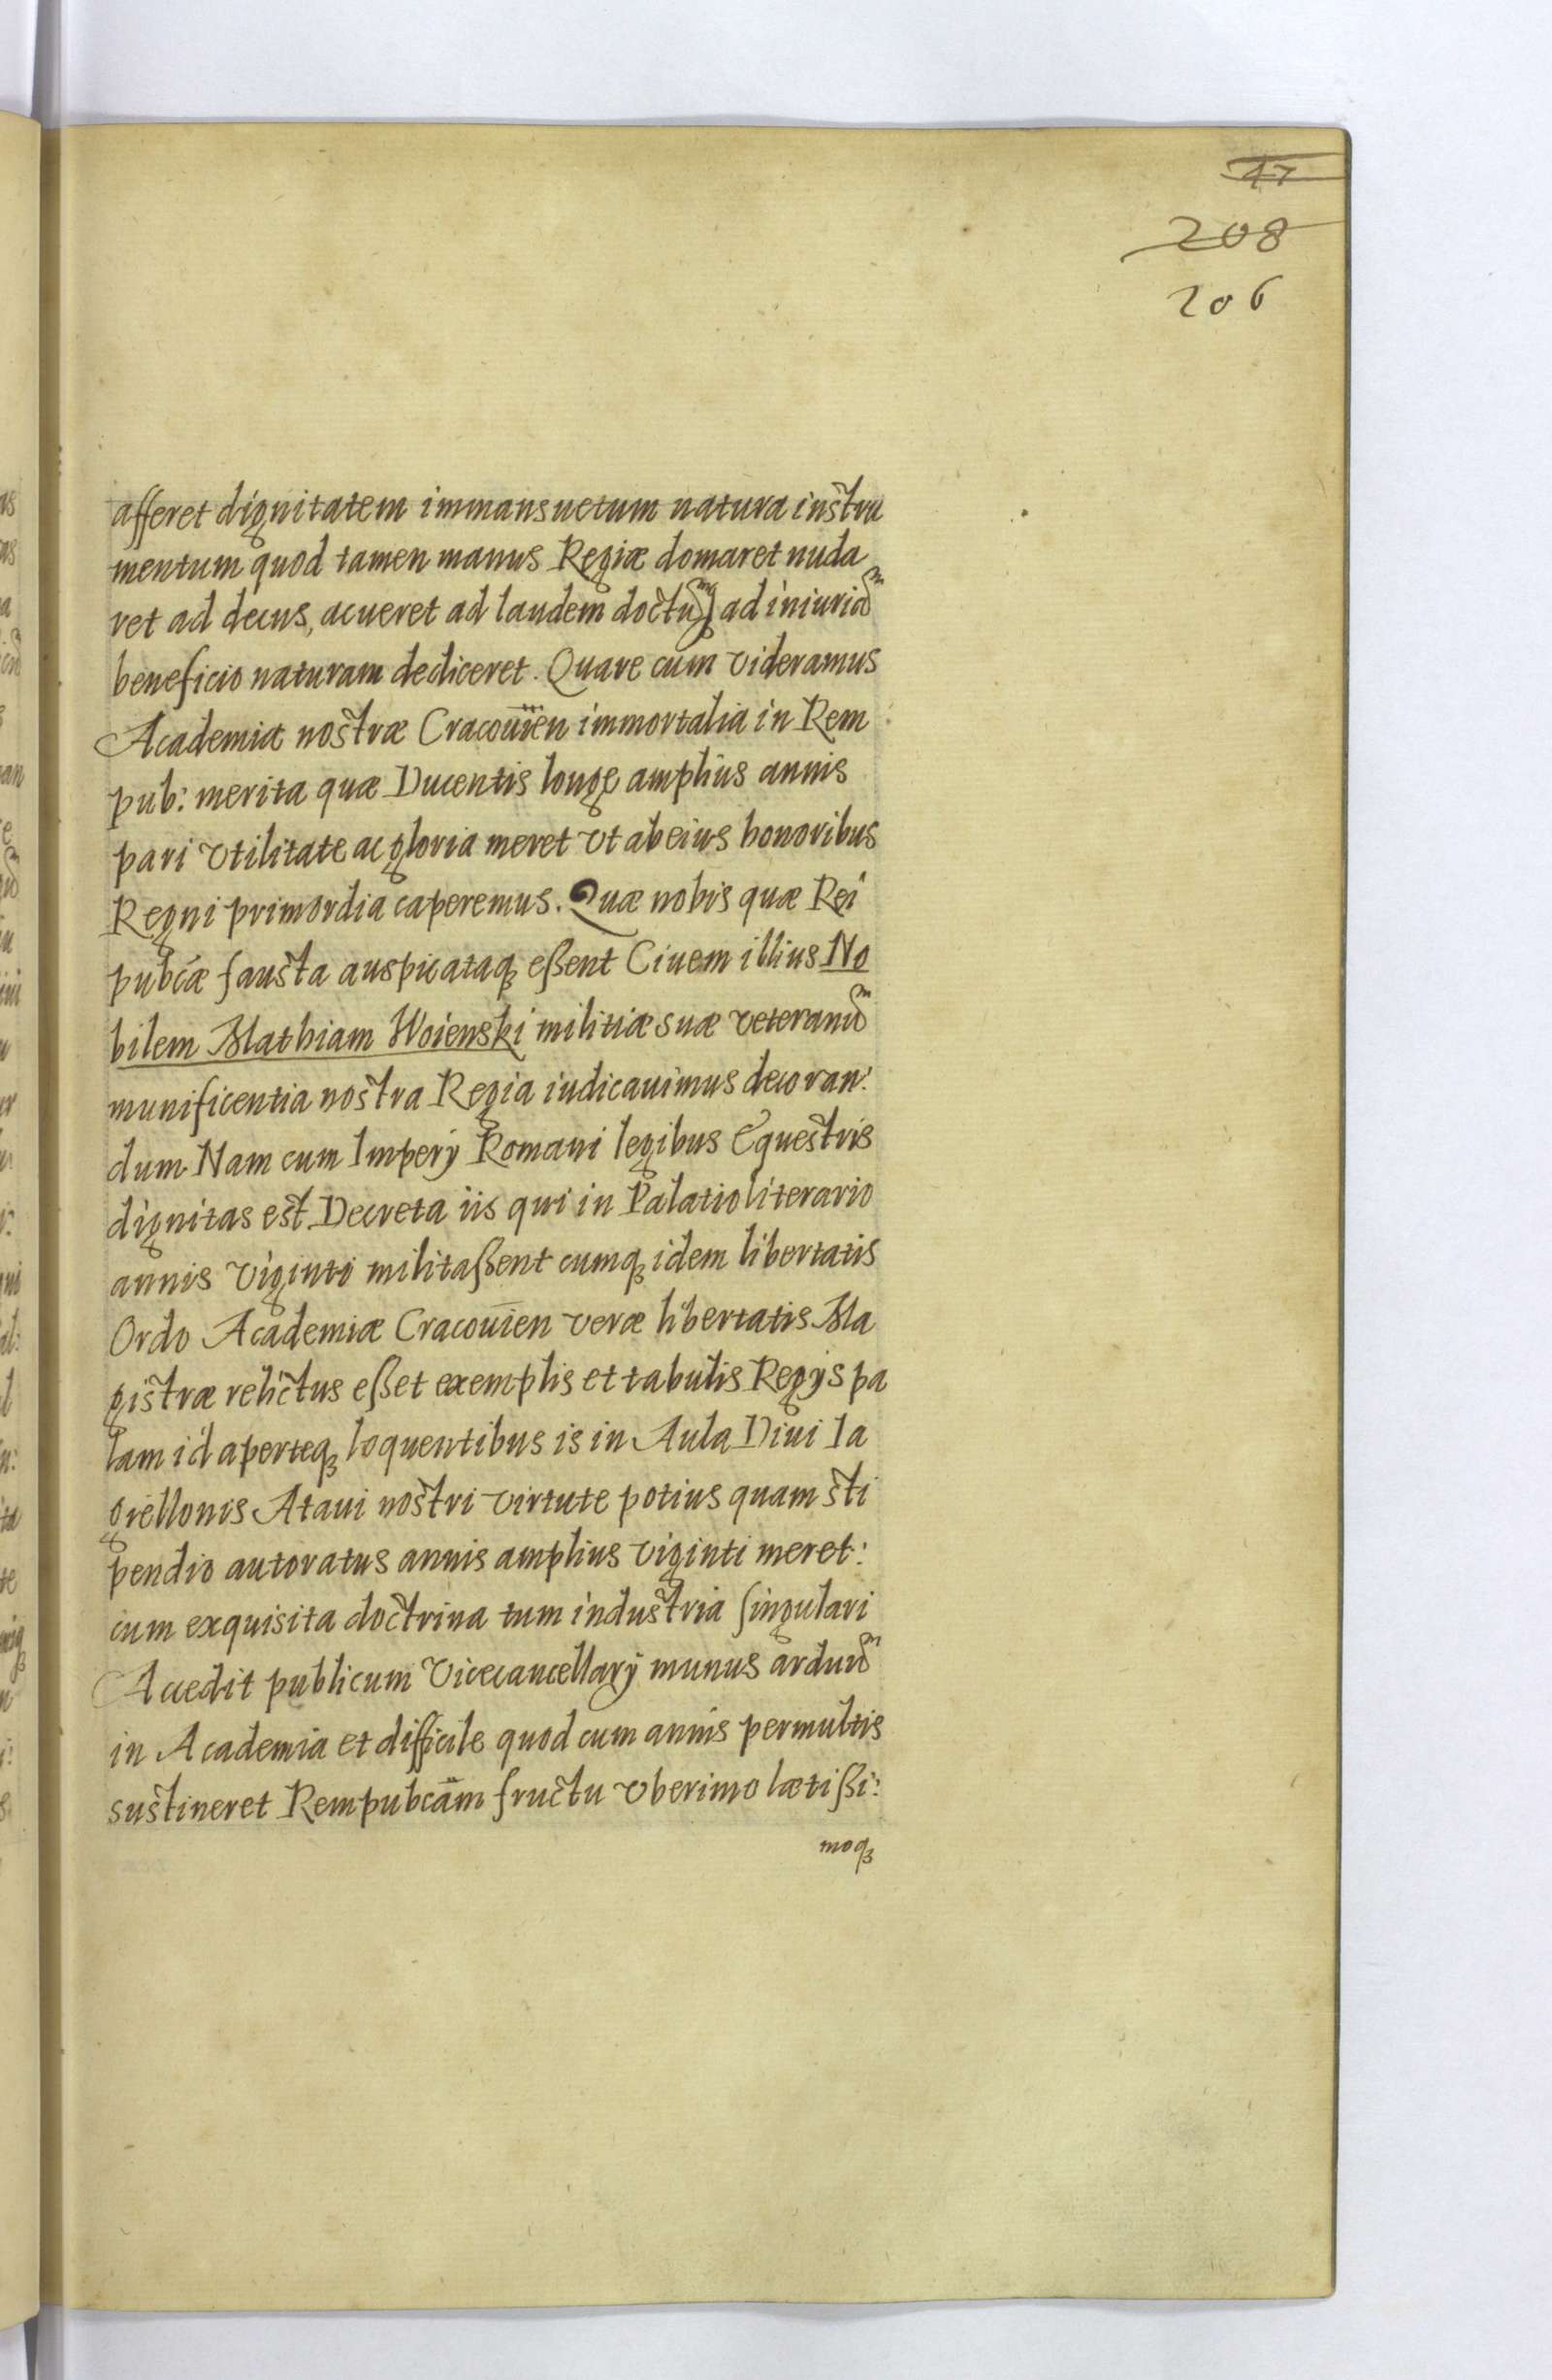 47
208
206
afferet dignitatem immansuetum natura instru
mentum quod tamen manus Regiæ domaret nuda
ret ad decus, acueret ad laudem doctum ad iniuriam
beneficio naturam dediceret. Quare cum videramus
Academiæ nostræ Cracouien immortalia in Rem
pub: merita quæ Ducentis longe amplius annis
pari vtilitate ac gloria meret vt ab eius honoribus
Regni primordia caperemus. Quæ nobis quæ Rei
pubcæ fausta auspicataq; eßent Ciuem illius No
bilem Mathiam Woienski militiæ suæ veteranum
munificentia nostra Regia iudicauimus decoran:
dum Nam cum Imperÿ Romani legibus Equestris
dignitas est Decreta iis qui in Palatio literario
annis viginti militaßent cumq; idem libertatis
Ordo Academiæ Cracouien veræ libertatis Ma
gistræ relictus eßet exemplis et tabulis Regÿs pa
lam id aperteq; loquentibus is in Aula Diui Ia
giellonis Ataui nostri virtute potius quam sti
pendio autoratus annis amplius viginti meret:
cum exquisita doctrina tum industria singulari
Accedit publicum Vicecancellarÿ munus arduum
in Academia et difficile quod cum annis permultis
sustineret Rempubcam fructu vberimo lætißi:
moq;